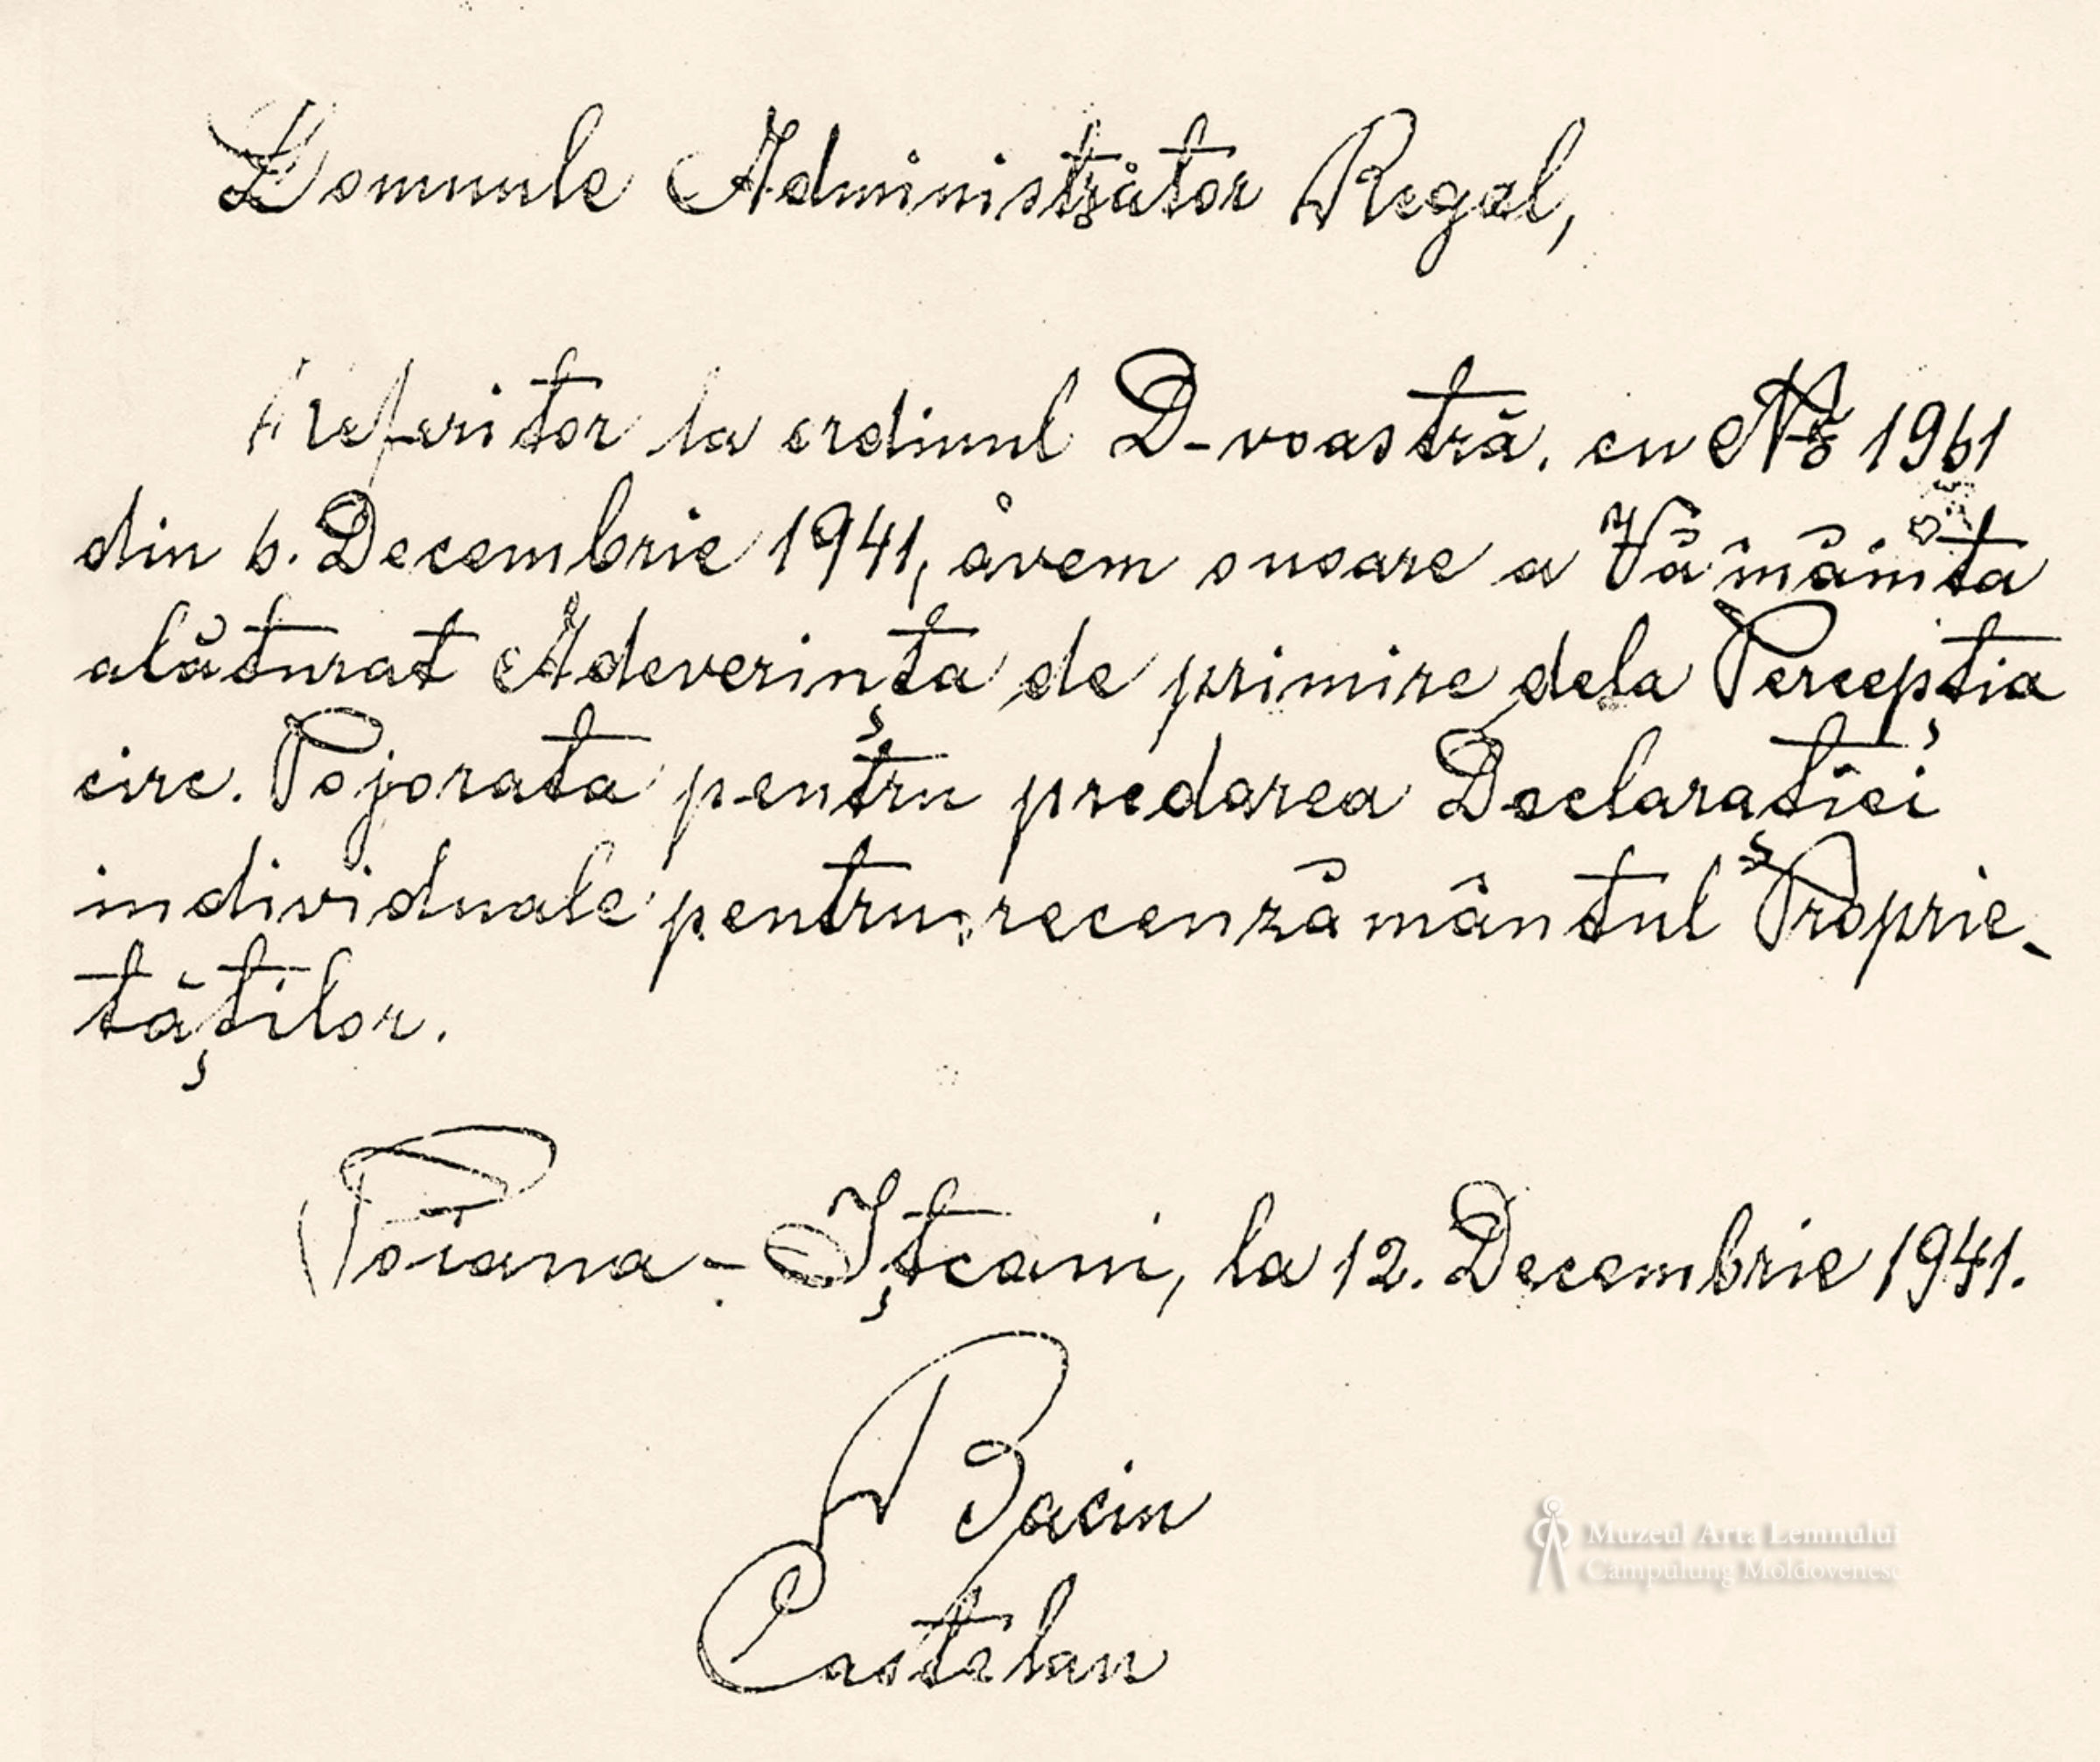 Domnule Administrator Regal,
Referitor la ordinul D-voastră, cu No 1961
din 6. Decembrie 1941, avem onoare a Vă mâinta
alăturat Adeverința de primire dela Percepția
circ. Pojorata pentru predarea Declarației
individuale pentru recenzământul Proprie-
tăților.
Poiana-Ițcani, la 12. Decembrie 1941.
Baciu
Castelan
Muzeul Arta Lemnului
Câmpulung Moldovenesc